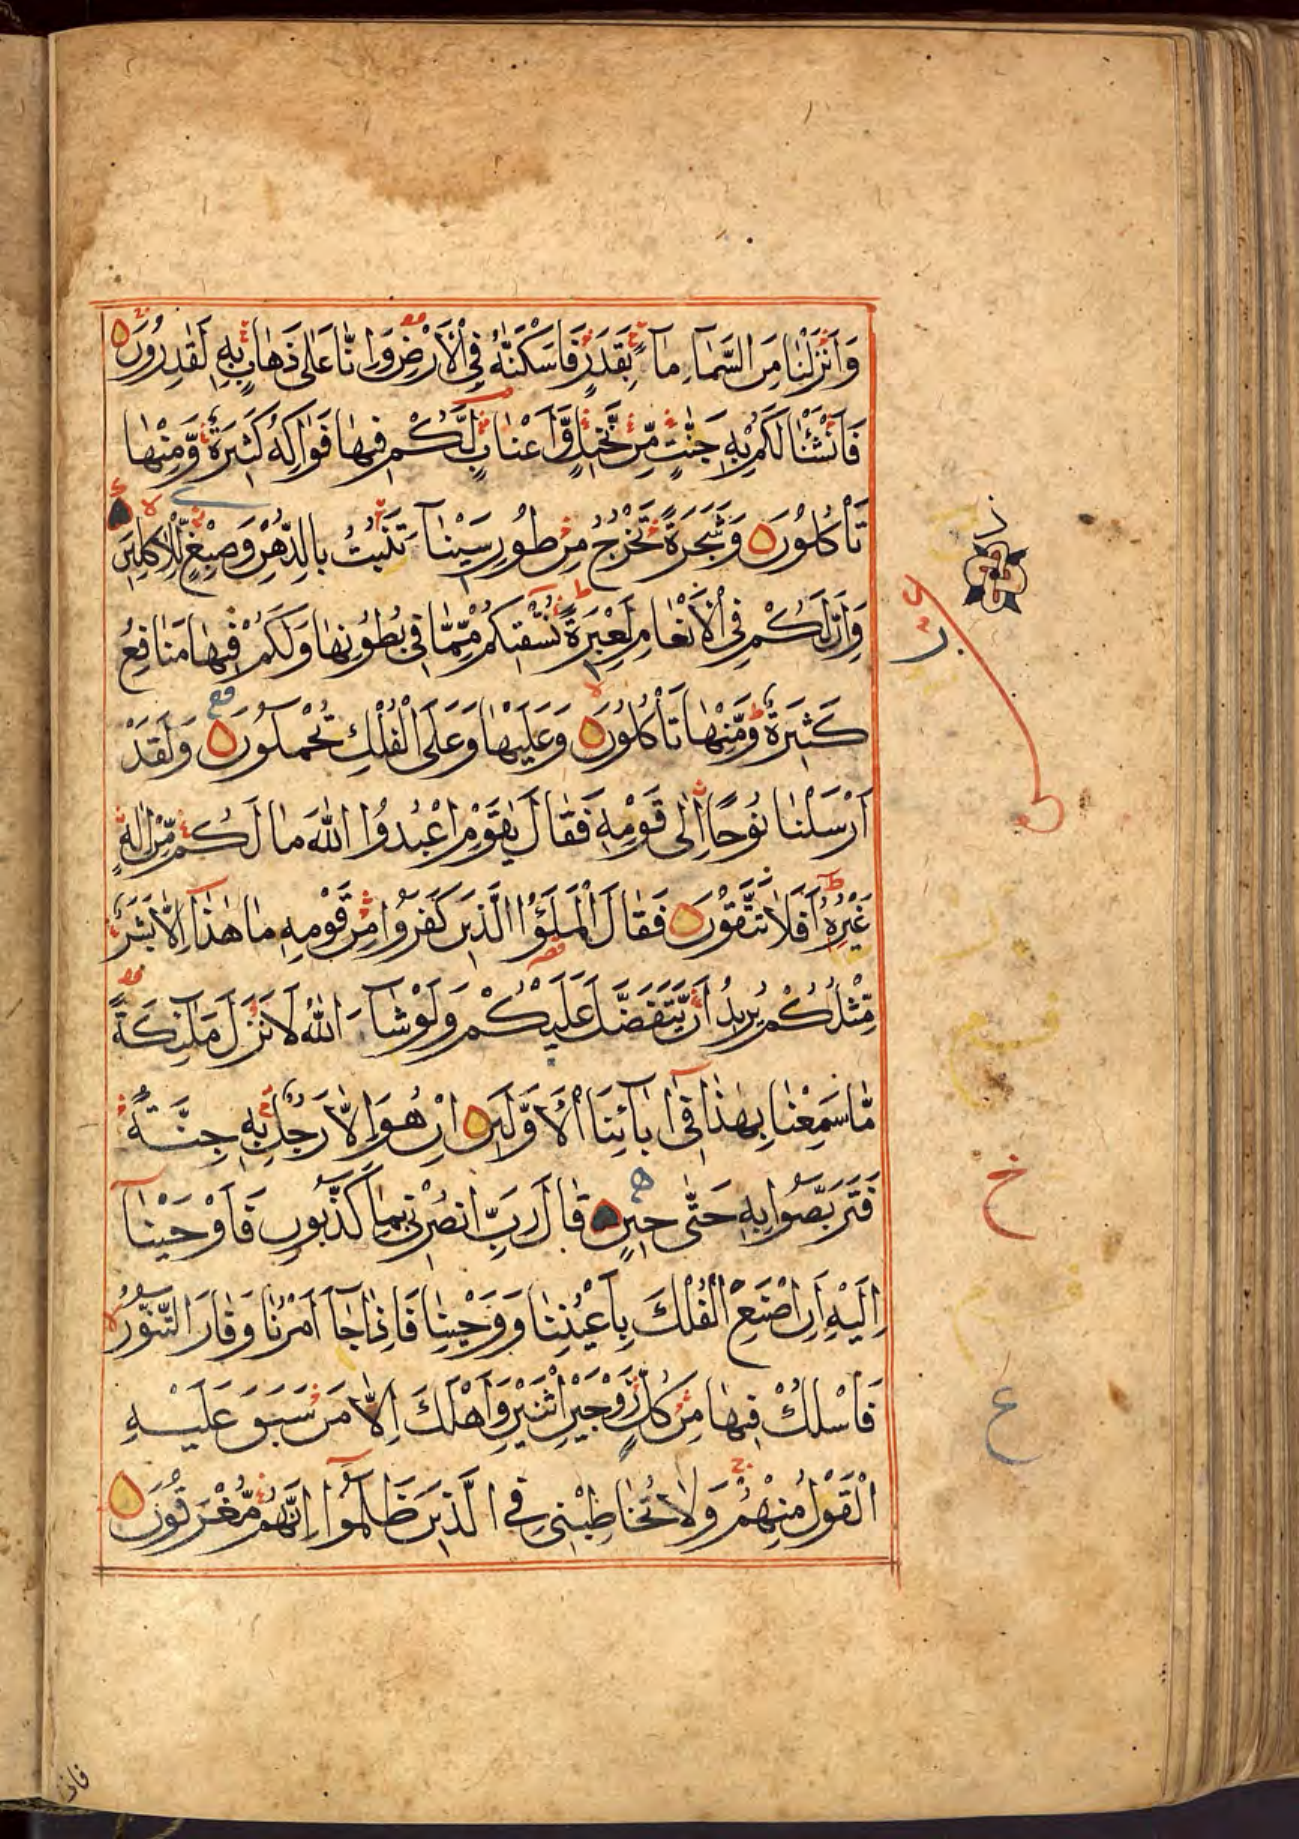 وَاَنْزَلْنَا مِنَ السَّمَآءِ مَآءً بِقَدَرٍ فَاَسْكَنّٰهُ فِي الْاَرْضِ وَاِنَّا عَلٰى ذَهَابٍ بِهٖ لَقٰدِرُوْنَ
فَاَنْشَاْنَا لَكُمْ بِهٖ جَنّٰتٍ مِّنْ نَّخِيْلٍ وَّاَعْنَابٍ لَّكُمْ فِيْهَا فَوَاكِهُ كَثِيْرَةٌ وَّمِنْهَا
تَأْكُلُوْنَ وَشَجَرَةً تَخْرُجُ مِنْ طُوْرِ سَيْنَآءَ تَنْبُتُ بِالدُّهْنِ وَصِبْغٍ لِّلْاٰكِلِيْنَ
وَاِنَّ لَكُمْ فِي الْاَنْعَامِ لَعِبْرَةً نُسْقِيْكُمْ مِّمَّا فِيْ بُطُوْنِهَا وَلَكُمْ فِيْهَا مَنَافِعُ
كَثِيْرَةٌ وَّمِنْهَا تَأْكُلُوْنَ وَعَلَيْهَا وَعَلَى الْفُلْكِ تُحْمَلُوْنَ وَلَقَدْ
اَرْسَلْنَا نُوْحًا اِلٰى قَوْمِهٖ فَقَالَ يٰقَوْمِ اعْبُدُوا اللّٰهَ مَا لَكُمْ مِّنْ اِلٰهٍ
غَيْرُهٗ اَفَلَا تَتَّقُوْنَ فَقَالَ الْمَلَؤُا الَّذِيْنَ كَفَرُوْا مِنْ قَوْمِهٖ مَا هٰذَا اِلَّا بَشَرٌ
مِّثْلُكُمْ يُرِيْدُ اَنْ يَّتَفَضَّلَ عَلَيْكُمْ وَلَوْ شَآءَ اللّٰهُ لَاَنْزَلَ مَلٰٓئِكَةً
مَّا سَمِعْنَا بِهٰذَا فِيْٓ اٰبَآئِنَا الْاَوَّلِيْنَ اِنْ هُوَ اِلَّا رَجُلٌ بِهٖ جِنَّةٌ
فَتَرَبَّصُوْا بِهٖ حَتّٰى حِيْنٍ قَالَ رَبِّ انْصُرْنِيْ بِمَا كَذَّبُوْنِ فَاَوْحَيْنَآ
اِلَيْهِ اَنِ اصْنَعِ الْفُلْكَ بِاَعْيُنِنَا وَوَحْيِنَا فَاِذَا جَآءَ اَمْرُنَا وَفَارَ التَّنُّوْرُ
فَاسْلُكْ فِيْهَا مِنْ كُلٍّ زَوْجَيْنِ اثْنَيْنِ وَاَهْلَكَ اِلَّا مَنْ سَبَقَ عَلَيْهِ
الْقَوْلُ مِنْهُمْ وَلَا تُخَاطِبْنِيْ فِي الَّذِيْنَ ظَلَمُوْا اِنَّهُمْ مُّغْرَقُوْنَ
خ
ع